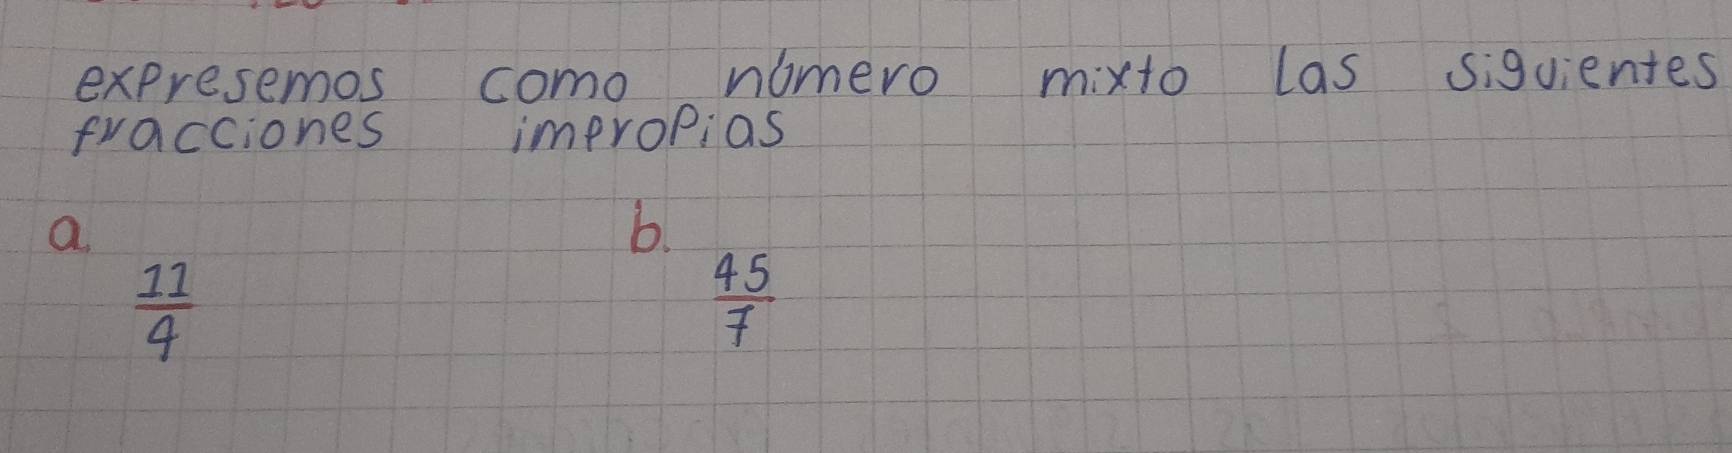 expresemos como número mixto las siguientes
fracciones impropias
a. b.
11/4 45/7